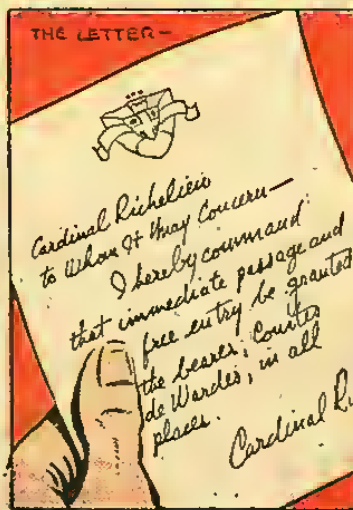 THE LETTER—
Cardinal Richelieu
to Whom It May Concern—
I hereby command
that immediate passage and
free entry be granted
the bearer, Comte
de Wardes, in all
places.
Cardinal R